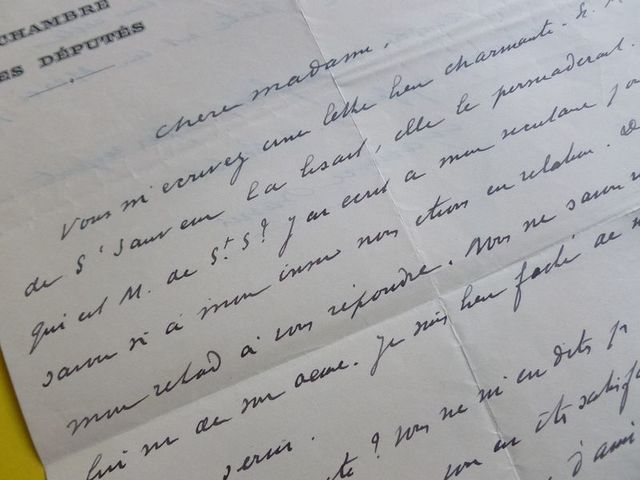 CHAMBRE
ES DÉPUTÉS
chere madame,
Vous m'ecrivez une lettre bien charmante. Si M.
de St Sauveur la lisait, elle le persuaderait.
qui est M. de St. S? J'ai ecrit a mon secretaire pour
savoir si à mon insu nous etions en relation. D
mon retard à vous répondre. Nous ne savons
lui ni de son aeme. Je suis bien faché de n
servir.
te? vous ne m'en dits p
vous en êts satisfa
d'ami